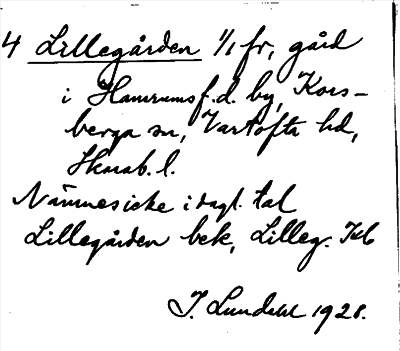 4 Lillegården 1/1 fr, gård
i Hamrums f.d. by, Kors-
berga sn, Vartofta hd,
Skarab. l.
Nämnes icke i dagl. tal
Lillegården bek, Lilleg.
J. Lundahl 1928.